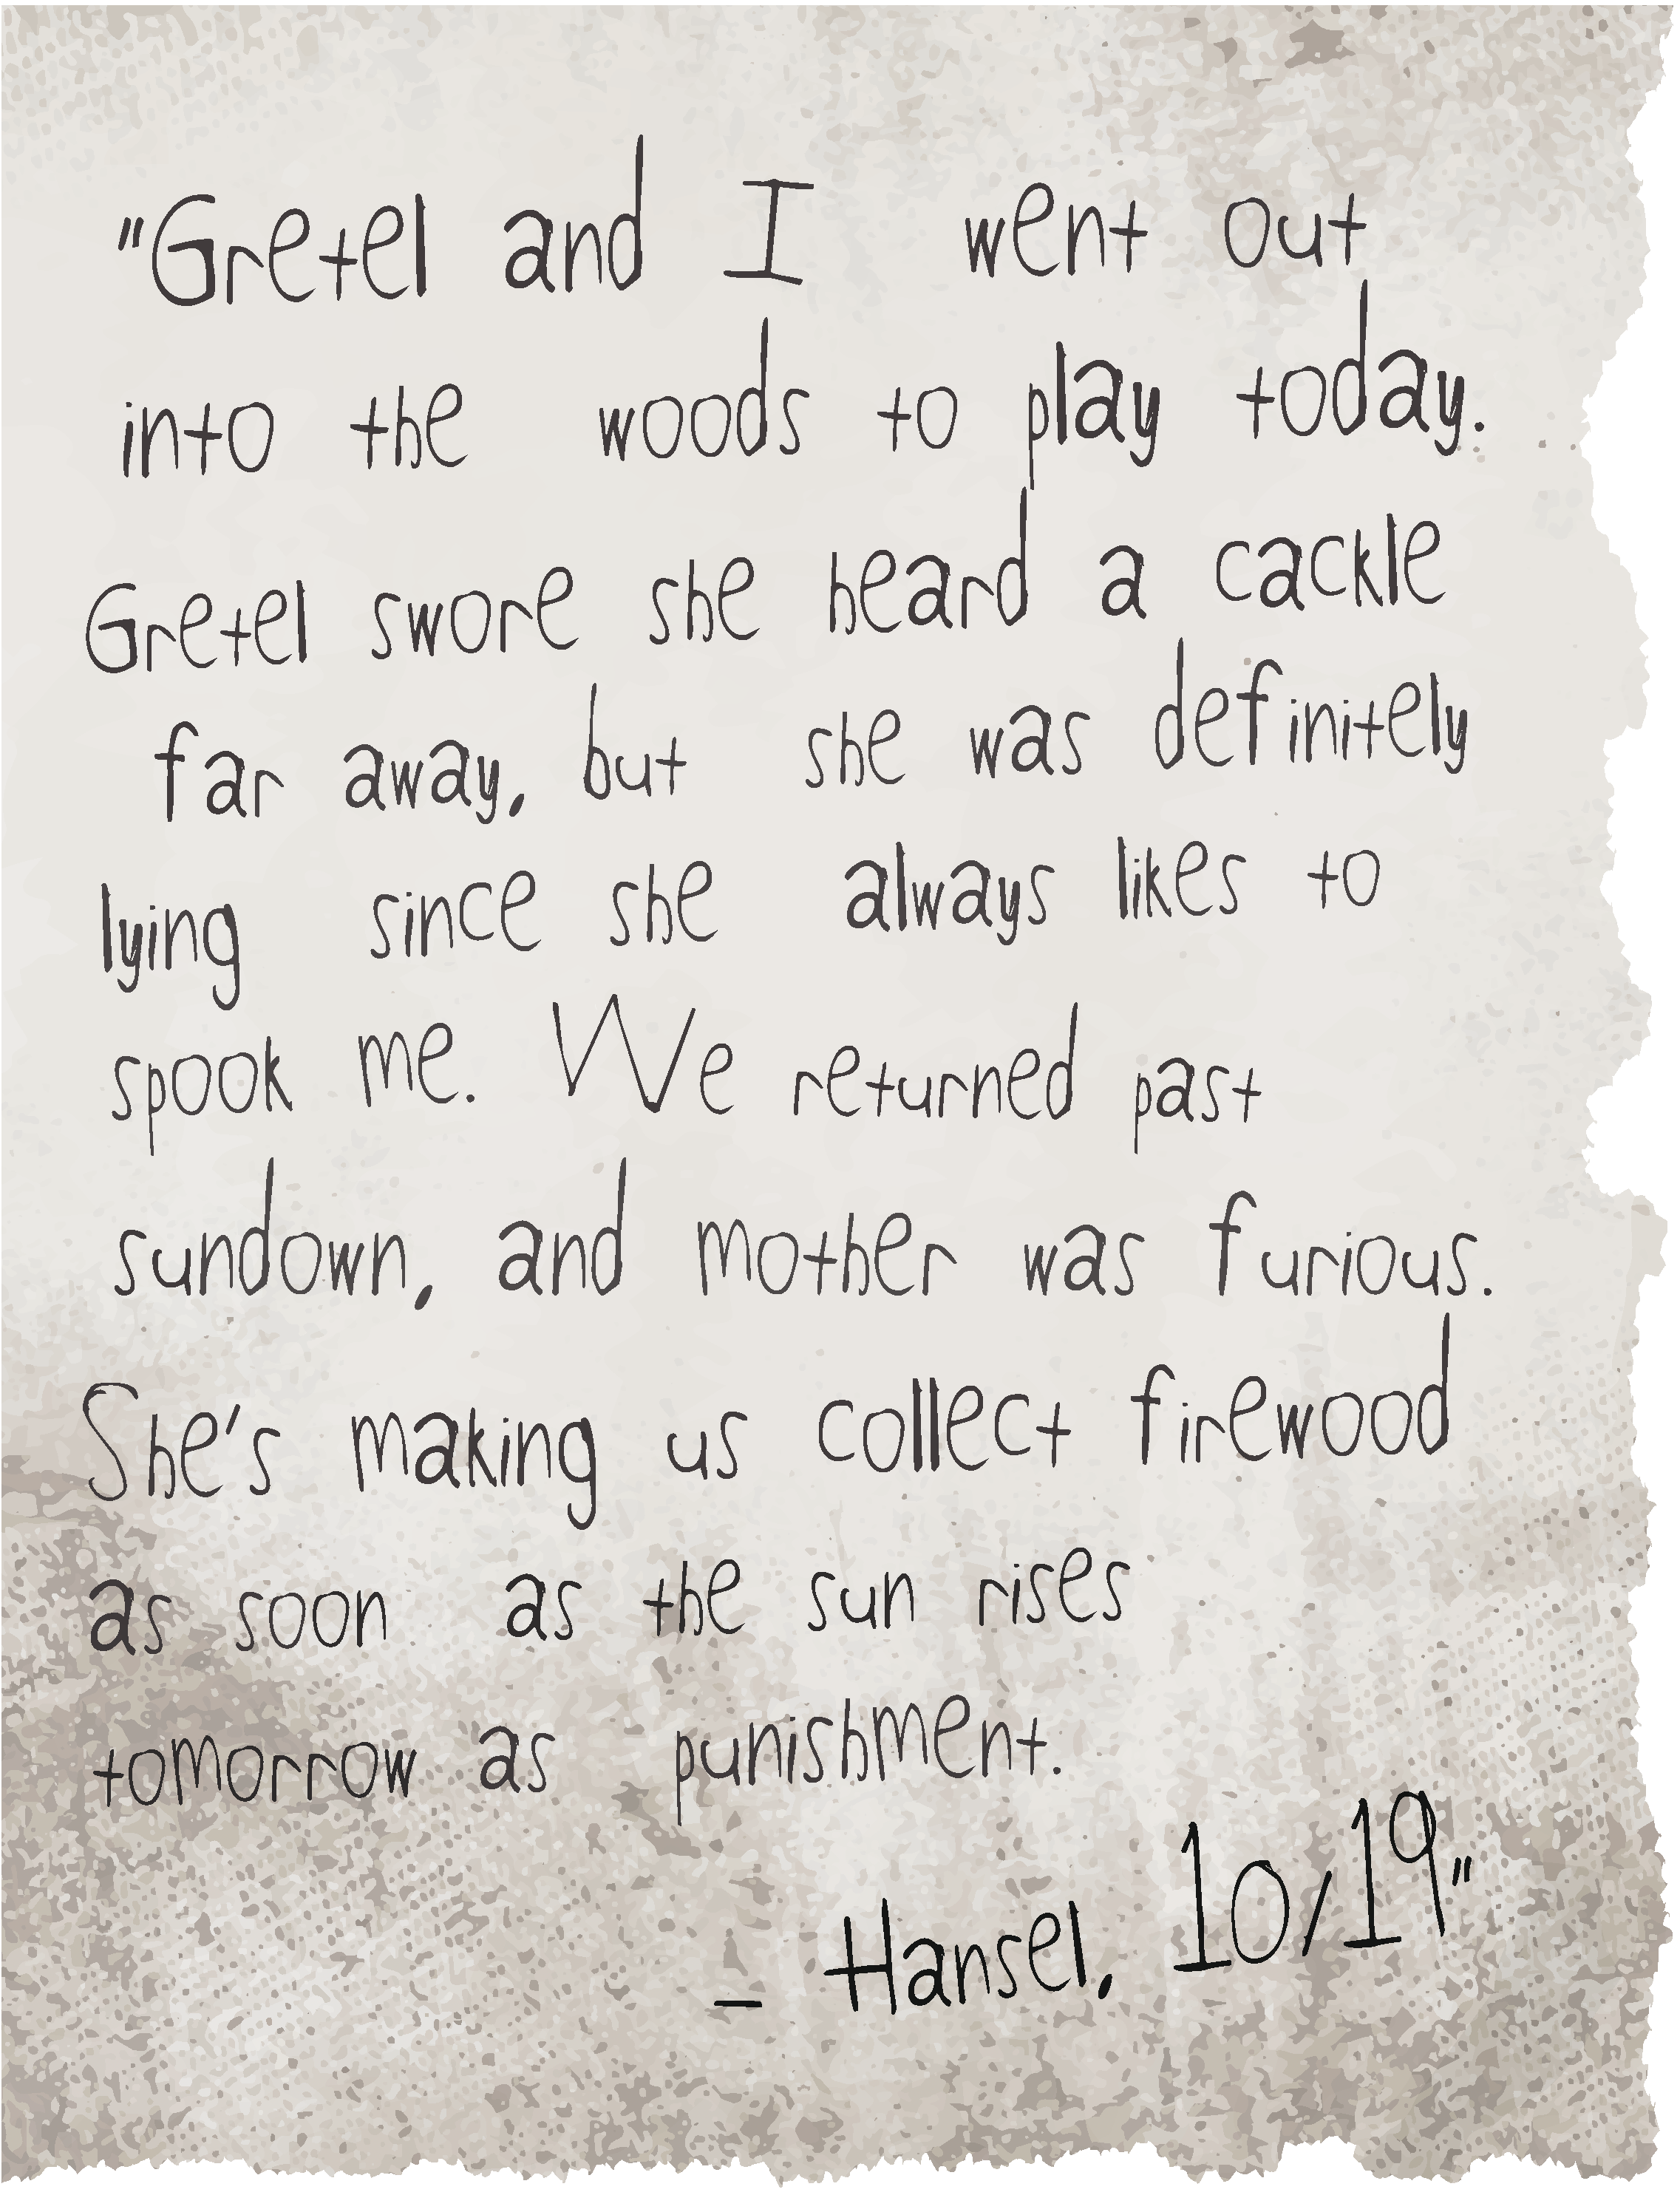 "Gretel and I went out
into the woods to play today.
Gretel swore she heard a cackle
far away, but she was definitely
lying since she always likes to
spook me. We returned past
sundown, and mother was furious.
She's making us collect firewood
as soon as the sun rises
tomorrow as punishment.
- Hansel, 10/19"